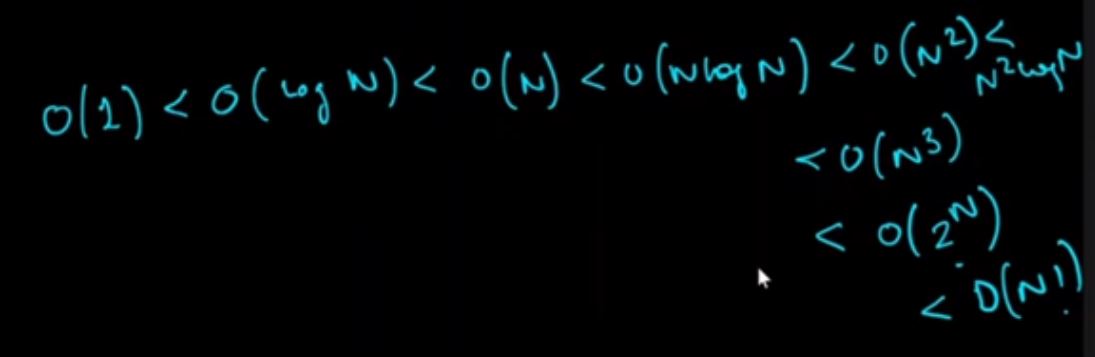 O(1) < O(log N) < O(N) < O(N log N) < O(N²) <
N² log N
< O(N³)
< O(2ᴺ)
< O(N!)